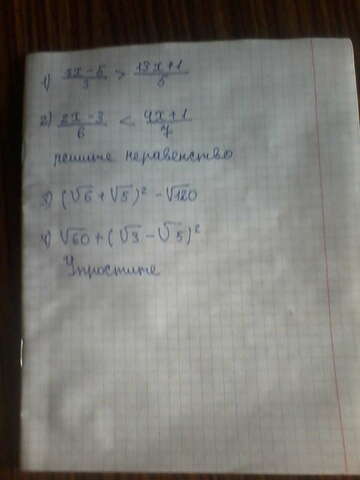 1) 3x-5/3 > 13x+1/5
2) 2x-3/6 < 4x+1/7
решите неравенство
3) (√6 + √5)² - √120
4) √60 + (√3 - √5)²
Упростите